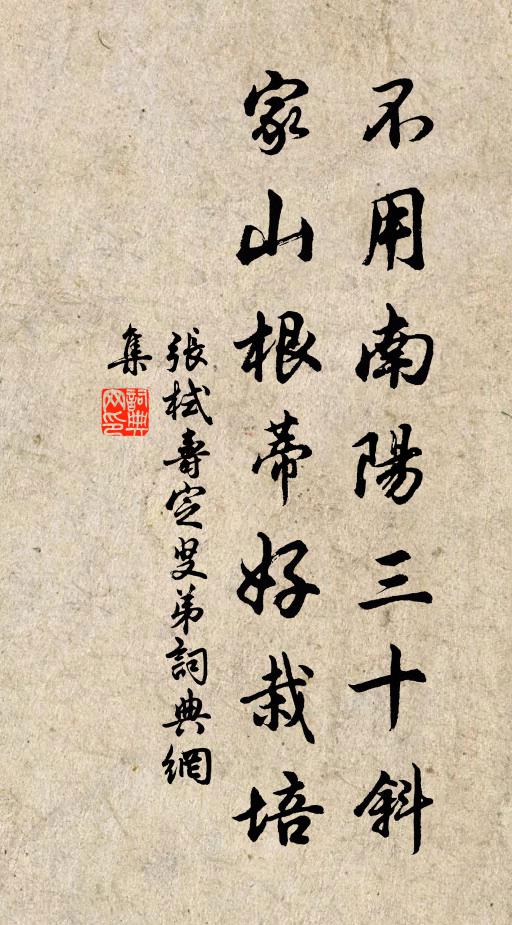 不用南陽三十斜
家山根蒂好栽培
張栻壽定叟弟詞典網
集
詞典
网印